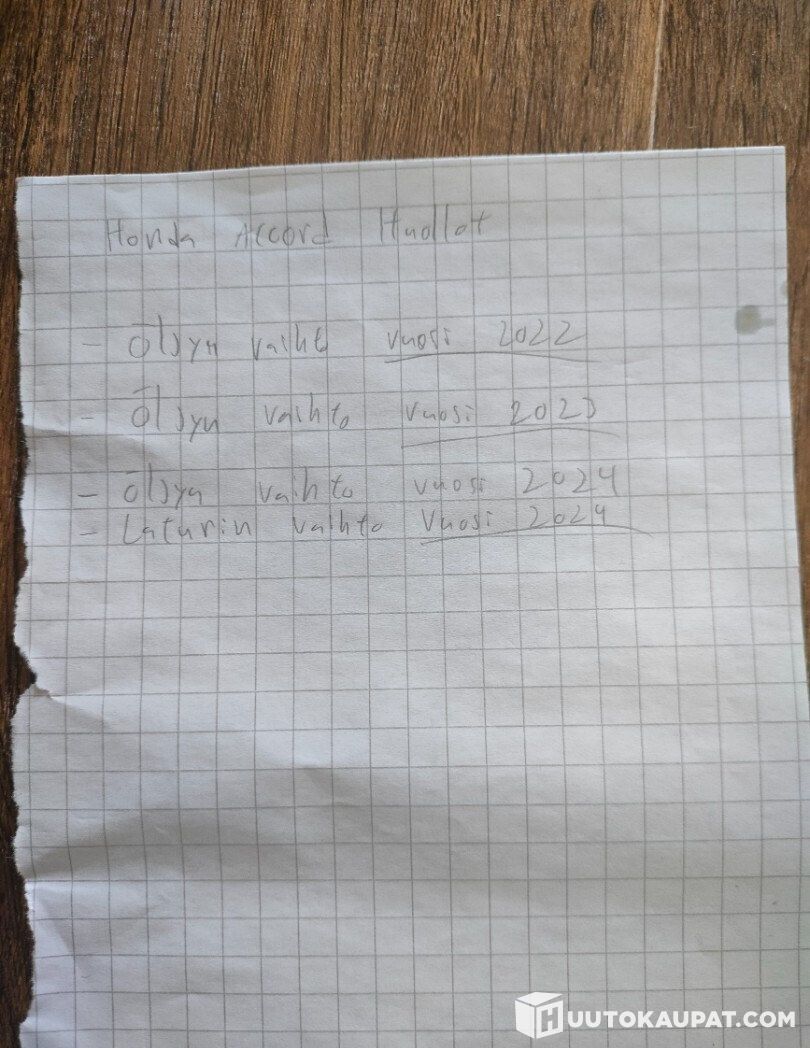 Honda Accord Huollot
- Öljyn vaihto vuosi 2022
- Öljyn vaihto vuosi 2023
- Öljyn vaihto vuosi 2024
- Laturin vaihto vuosi 2024
HUUTOKAUPAT.COM